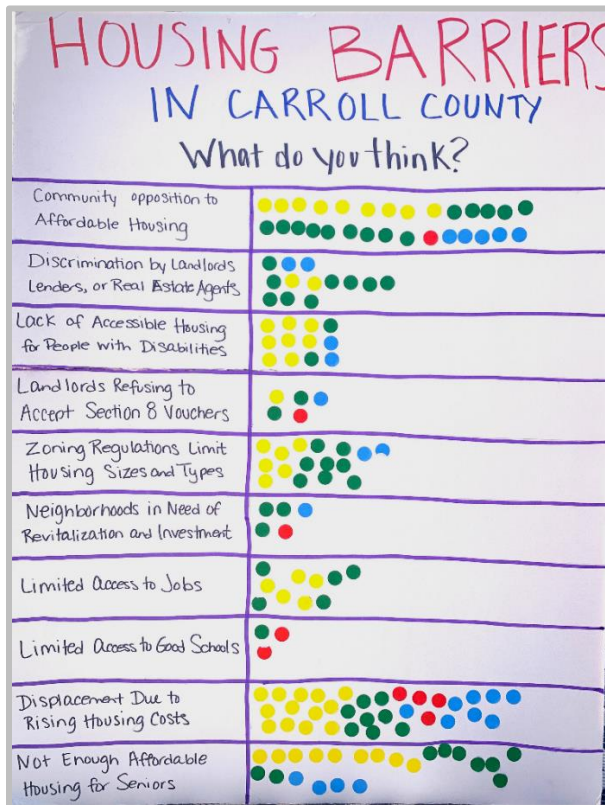 HOUSING BARRIERS
IN CARROLL COUNTY
What do you think?
Community opposition to
Affordable Housing
Discrimination by Landlords
Lenders, or Real Estate Agents
Lack of Accessible Housing
for People with Disabilities
Landlords Refusing to
Accept Section 8 Vouchers
Zoning Regulations Limit
Housing Sizes and Types
Neighborhoods in Need of
Revitalization and Investment
Limited Access to Jobs
Limited Access to Good Schools
Displacement Due to
Rising Housing Costs
Not Enough Affordable
Housing for Seniors